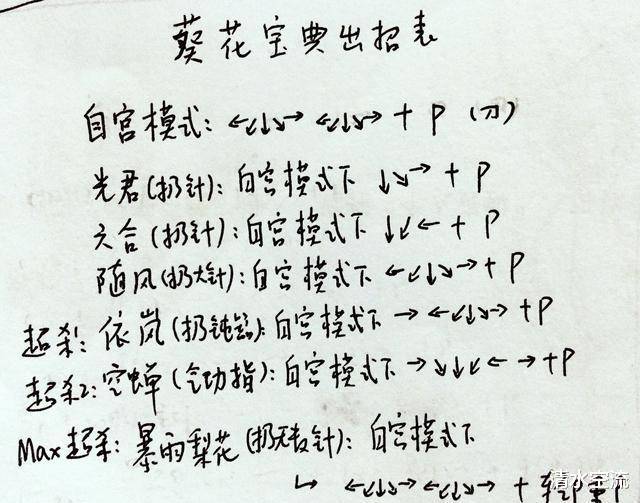 葵花宝典出招表
自宫模式: ←↙↓↘→ ←↙↓↘→ + P (刀)
光君(扔针): 自宫模式下 ↓↘→ + P
六合(扔针): 自宫模式下 ↓↙← + P
随风(扔大针): 自宫模式下 ←↙↓↘→ + P
超杀: 依岚(扔钝器): 自宫模式下 → ←↙↓↘→ + P
超杀2: 空蝉(金功指): 自宫模式下 →↘↓↙← → + P
Max超杀: 暴雨梨花(扔无数针): 自宫模式下
↳ ←↙↓↘→ ←↙↓↘→ +
清水空流